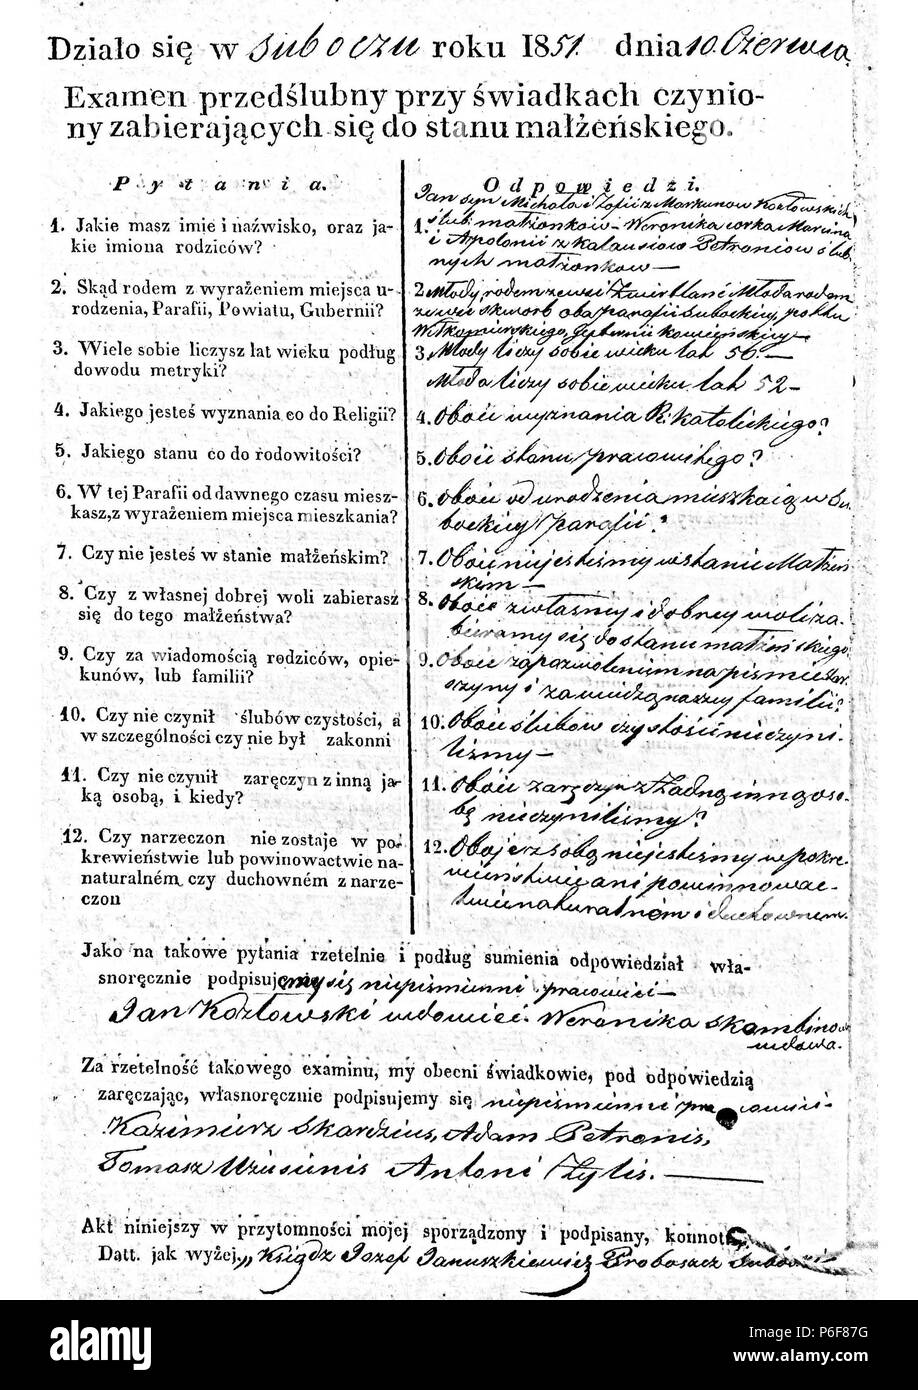 Działo się w Suboczu roku 1851. dnia 10. Czerwca.
Examen przedślubny przy świadkach czynio-
ny zabierających się do stanu małżeńskiego.
Pytania.
1. Jakie masz imie i naźwisko, oraz ja-
kie imiona rodziców?
2. Skąd rodem z wyrażeniem miejsca u-
rodzenia, Parafii, Powiatu, Gubernii?
3. Wiele sobie liczysz lat wieku podług
dowodu metryki?
4. Jakiego jesteś wyznania co do Religii?
5. Jakiego stanu co do rodowitości?
6. W tej Parafii od dawnego czasu miesz-
kasz, z wyrażeniem miejsca mieszkania?
7. Czy nie jesteś w stanie małżeńskim?
8. Czy z własnej dobrej woli zabierasz
się do tego małżeństwa?
9. Czy za wiadomością rodziców, opie-
kunów, lub familii?
10. Czy nie czynił ślubów czystości, a
w szczególności czy nie był zakonni
11. Czy nie czynił zaręczyn z inną ja-
ką osobą, i kiedy?
12. Czy narzeczon nie zostaje w po-
krewieństwie lub powinowactwie na-
naturalném czy duchowném z narze-
czon
Odpowiedzi.
Jan syn Michała i Zofii z Markunow Kozłowskich
1. ślub. małżonków — Weronika corka Marcina
i Apolonii z Kalausiow Petroniow ślub
nych małżonkow —
2. Młody rodem ze wsi Młoda rodem
ze wsi oba parafii Subockiey, pottu
Wiłkomirskiego, Gubernii Kowieńskiey —
3. Młody liczy sobie wieku lat 56 —
Młoda liczy sobie wieku lat 52 —
4. Oboie wyznania R. Katolickiego?
5. Oboie stanu pracowitego?
6. Oboie od urodzenia mieszkaią w Su-
bockiey parafii.
7. Oboie niejesteśmy w stanie Małżeń-
skim —
8. Oboie z własney i dobrey woli za-
bieramy się do stanu małżeńskiego
9. Oboie za pozwoleniem na pismie dwor
szyny i za wiedzą naszey familii?
10. Oboie ślubow czystości nieczyni-
liśmy —
11. Oboie zaręczyn z żadną inną oso-
bą nieczyniliśmy?
12. Oboje z sobą niejesteśmy w pokre-
wieństwie ani powinnowac-
twie naturalném i duchownem.
Jako na takowe pytania rzetelnie i podług sumienia odpowiedział wła-
snoręcznie podpisujemy się niepismienni pracowici —
Jan Kozłowski wdowiec. Weronika Skambinowa
wdowa.
Za rzetelność takowego examinu, my obecni świadkowie, pod odpowiedzią
zaręczając, własnoręcznie podpisujemy się niepismienni pracowici -
Kazimierz Skardzius, Adam Petronis,
Tomasz Uzusienis Antoni Zylis. —
Akt niniejszy w przytomności mojej sporządzony i podpisany, konnot
Datt. jak wyżej, Ksiądz Jozef Januszkiewicz Proboszcz Subo
alamy
Image ID: P6F87G
www.alamy.com